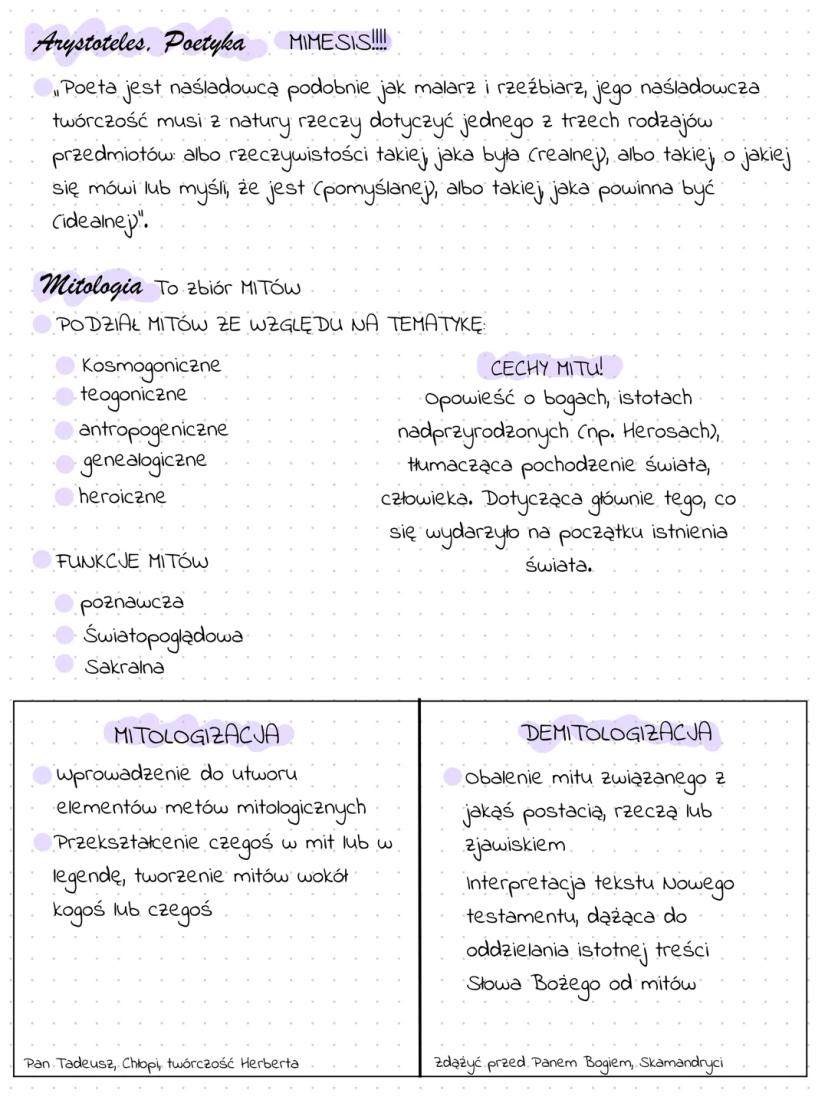 Arystoteles, Poetyka MIMESIS!!!!
„Poeta jest naśladowcą podobnie jak malarz i rzeźbiarz, jego naśladowcza
twórczość musi z natury rzeczy dotyczyć jednego z trzech rodzajów
przedmiotów: albo rzeczywistości takiej, jaka była (realnej), albo takiej, o jakiej
się mówi lub myśli, że jest (pomyślanej), albo takiej, jaka powinna być
(idealnej)".
Mitologia To zbiór MITÓW
PODZIAŁ MITÓW ZE WZGLĘDU NA TEMATYKĘ:
Kosmogoniczne
teogoniczne
antropogeniczne
genealogiczne
heroiczne
CECHY MITU!
Opowieść o bogach, istotach
nadprzyrodzonych (np. Herosach),
tłumacząca pochodzenie świata,
człowieka. Dotycząca głównie tego, co
się wydarzyło na początku istnienia
świata.
FUNKCJE MITÓW
poznawcza
Światopoglądowa
Sakralna
MITOLOGIZACJA
Wprowadzenie do utworu
elementów metów mitologicznych
Przekształcenie czegoś w mit lub w
legendę, tworzenie mitów wokół
kogoś lub czegoś
Pan Tadeusz, Chłopi, twórczość Herberta
DEMITOLOGIZACJA
Obalenie mitu związanego z
jakąś postacią, rzeczą lub
zjawiskiem
Interpretacja tekstu Nowego
testamentu, dążąca do
oddzielania istotnej treści
Słowa Bożego od mitów
Zdążyć przed Panem Bogiem, Skamandryci